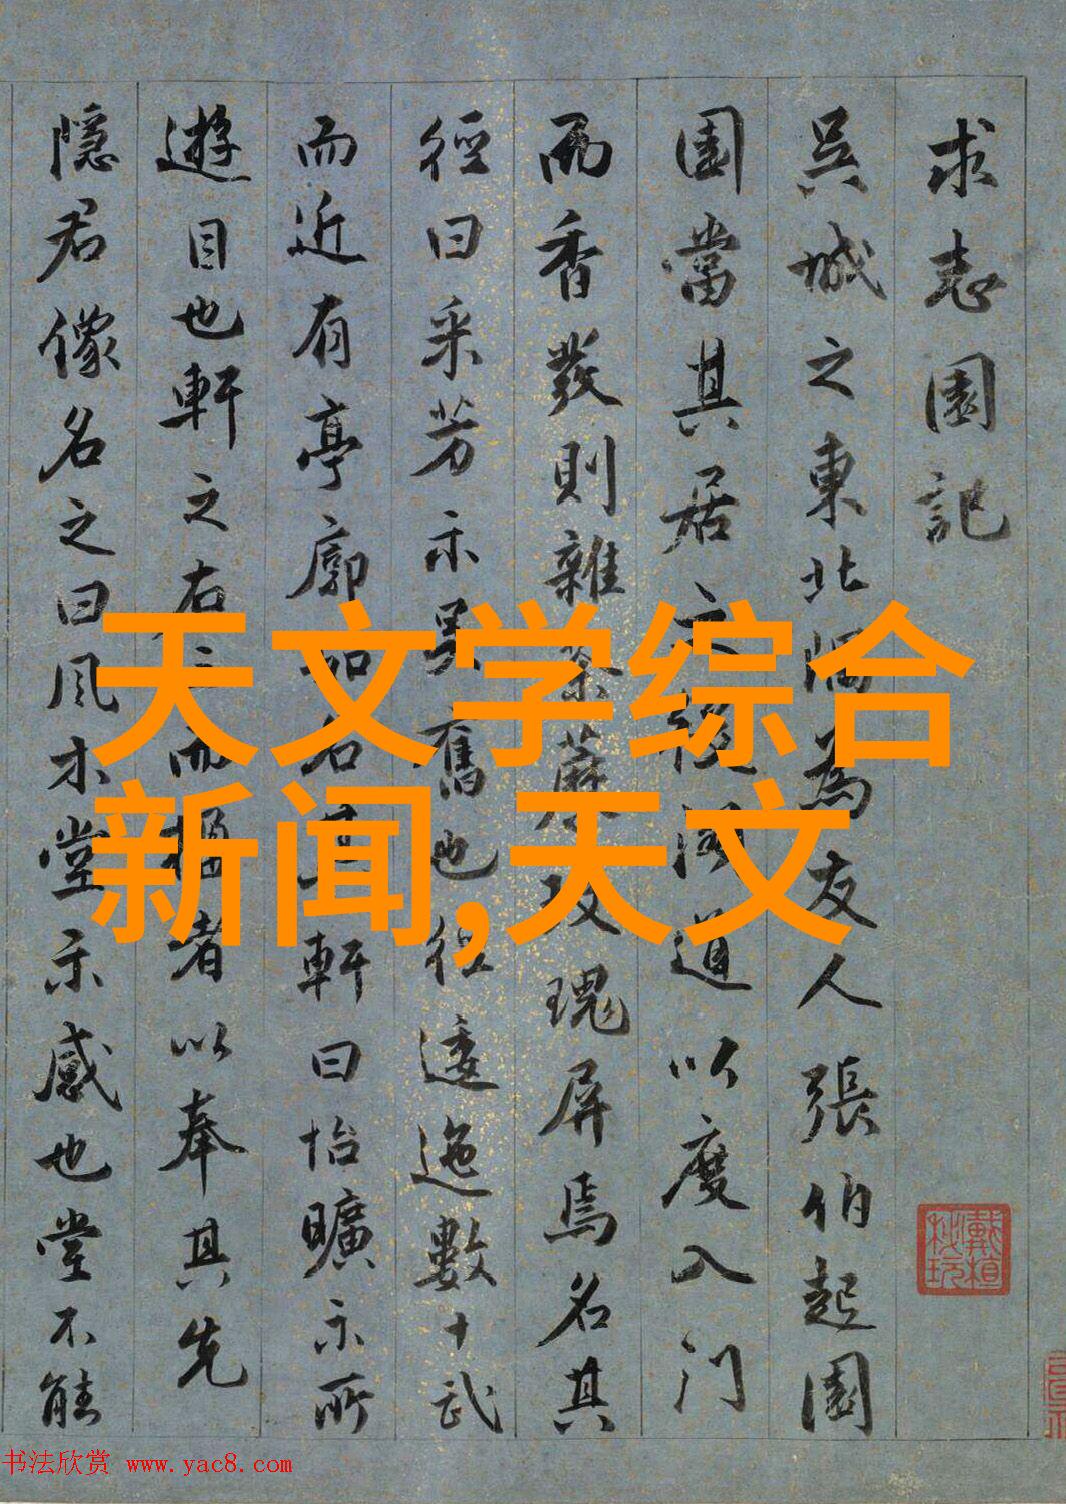 求志園記
吳城之東北隅為友人張伯起園
園當其居之後閣道以度入門
而香發則雜荼蘼及瑰屏焉名其
徑曰采芳示吳舊也徑逶迤數十武
而近有亭廓如名其軒曰怡曠示所
遊目也軒之右三而楹者以奉其先
隱君像名之曰風木堂示感也堂不能
天文学综合
新闻,天文
戴植秘玩
书法欣赏 www.yac8.com